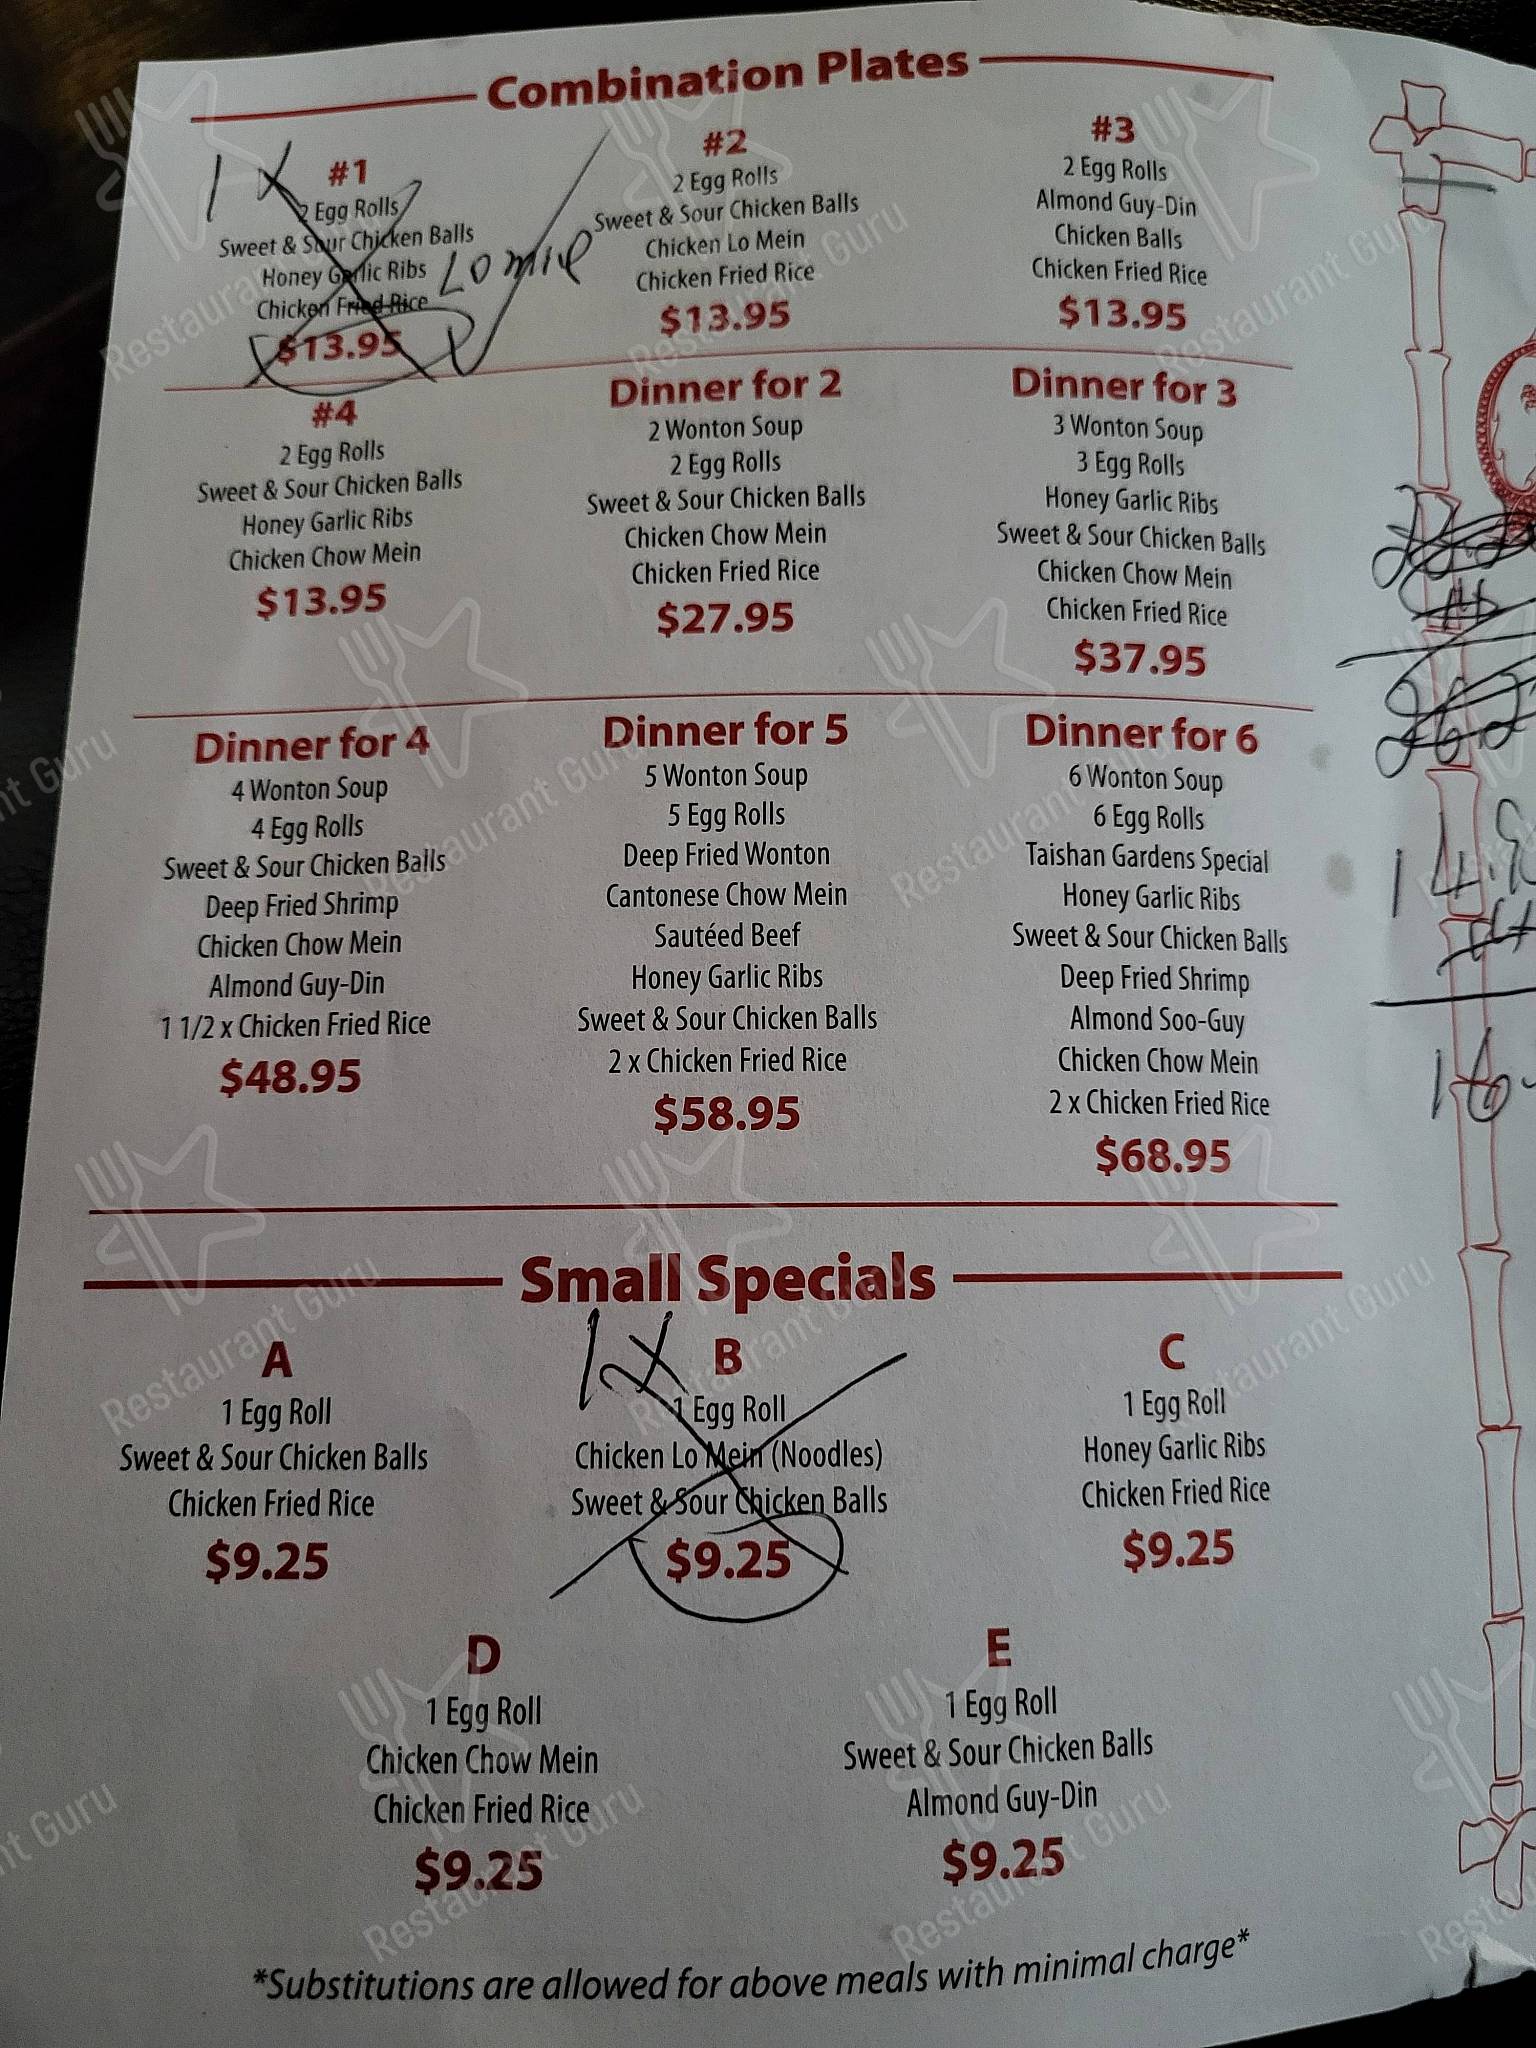 Combination Plates
#1
2 Egg Rolls
Sweet & Sour Chicken Balls
Honey Garlic Ribs
Chicken Fried Rice
$13.95
1 X
Lo mie
#2
2 Egg Rolls
Sweet & Sour Chicken Balls
Chicken Lo Mein
Chicken Fried Rice
$13.95
#3
2 Egg Rolls
Almond Guy-Din
Chicken Balls
Chicken Fried Rice
$13.95
#4
2 Egg Rolls
Sweet & Sour Chicken Balls
Honey Garlic Ribs
Chicken Chow Mein
$13.95
Dinner for 2
2 Wonton Soup
2 Egg Rolls
Sweet & Sour Chicken Balls
Chicken Chow Mein
Chicken Fried Rice
$27.95
Dinner for 3
3 Wonton Soup
3 Egg Rolls
Honey Garlic Ribs
Sweet & Sour Chicken Balls
Chicken Chow Mein
Chicken Fried Rice
$37.95
Dinner for 4
4 Wonton Soup
4 Egg Rolls
Sweet & Sour Chicken Balls
Deep Fried Shrimp
Chicken Chow Mein
Almond Guy-Din
1 1/2 x Chicken Fried Rice
$48.95
Dinner for 5
5 Wonton Soup
5 Egg Rolls
Deep Fried Wonton
Cantonese Chow Mein
Sautéed Beef
Honey Garlic Ribs
Sweet & Sour Chicken Balls
2 x Chicken Fried Rice
$58.95
Dinner for 6
6 Wonton Soup
6 Egg Rolls
Taishan Gardens Special
Honey Garlic Ribs
Sweet & Sour Chicken Balls
Deep Fried Shrimp
Almond Soo-Guy
Chicken Chow Mein
2 x Chicken Fried Rice
$68.95
Small Specials
A
1 Egg Roll
Sweet & Sour Chicken Balls
Chicken Fried Rice
$9.25
1x
B
1 Egg Roll
Chicken Lo Mein (Noodles)
Sweet & Sour Chicken Balls
$9.25
C
1 Egg Roll
Honey Garlic Ribs
Chicken Fried Rice
$9.25
D
1 Egg Roll
Chicken Chow Mein
Chicken Fried Rice
$9.25
E
1 Egg Roll
Sweet & Sour Chicken Balls
Almond Guy-Din
$9.25
*Substitutions are allowed for above meals with minimal charge*
Restaurant Guru